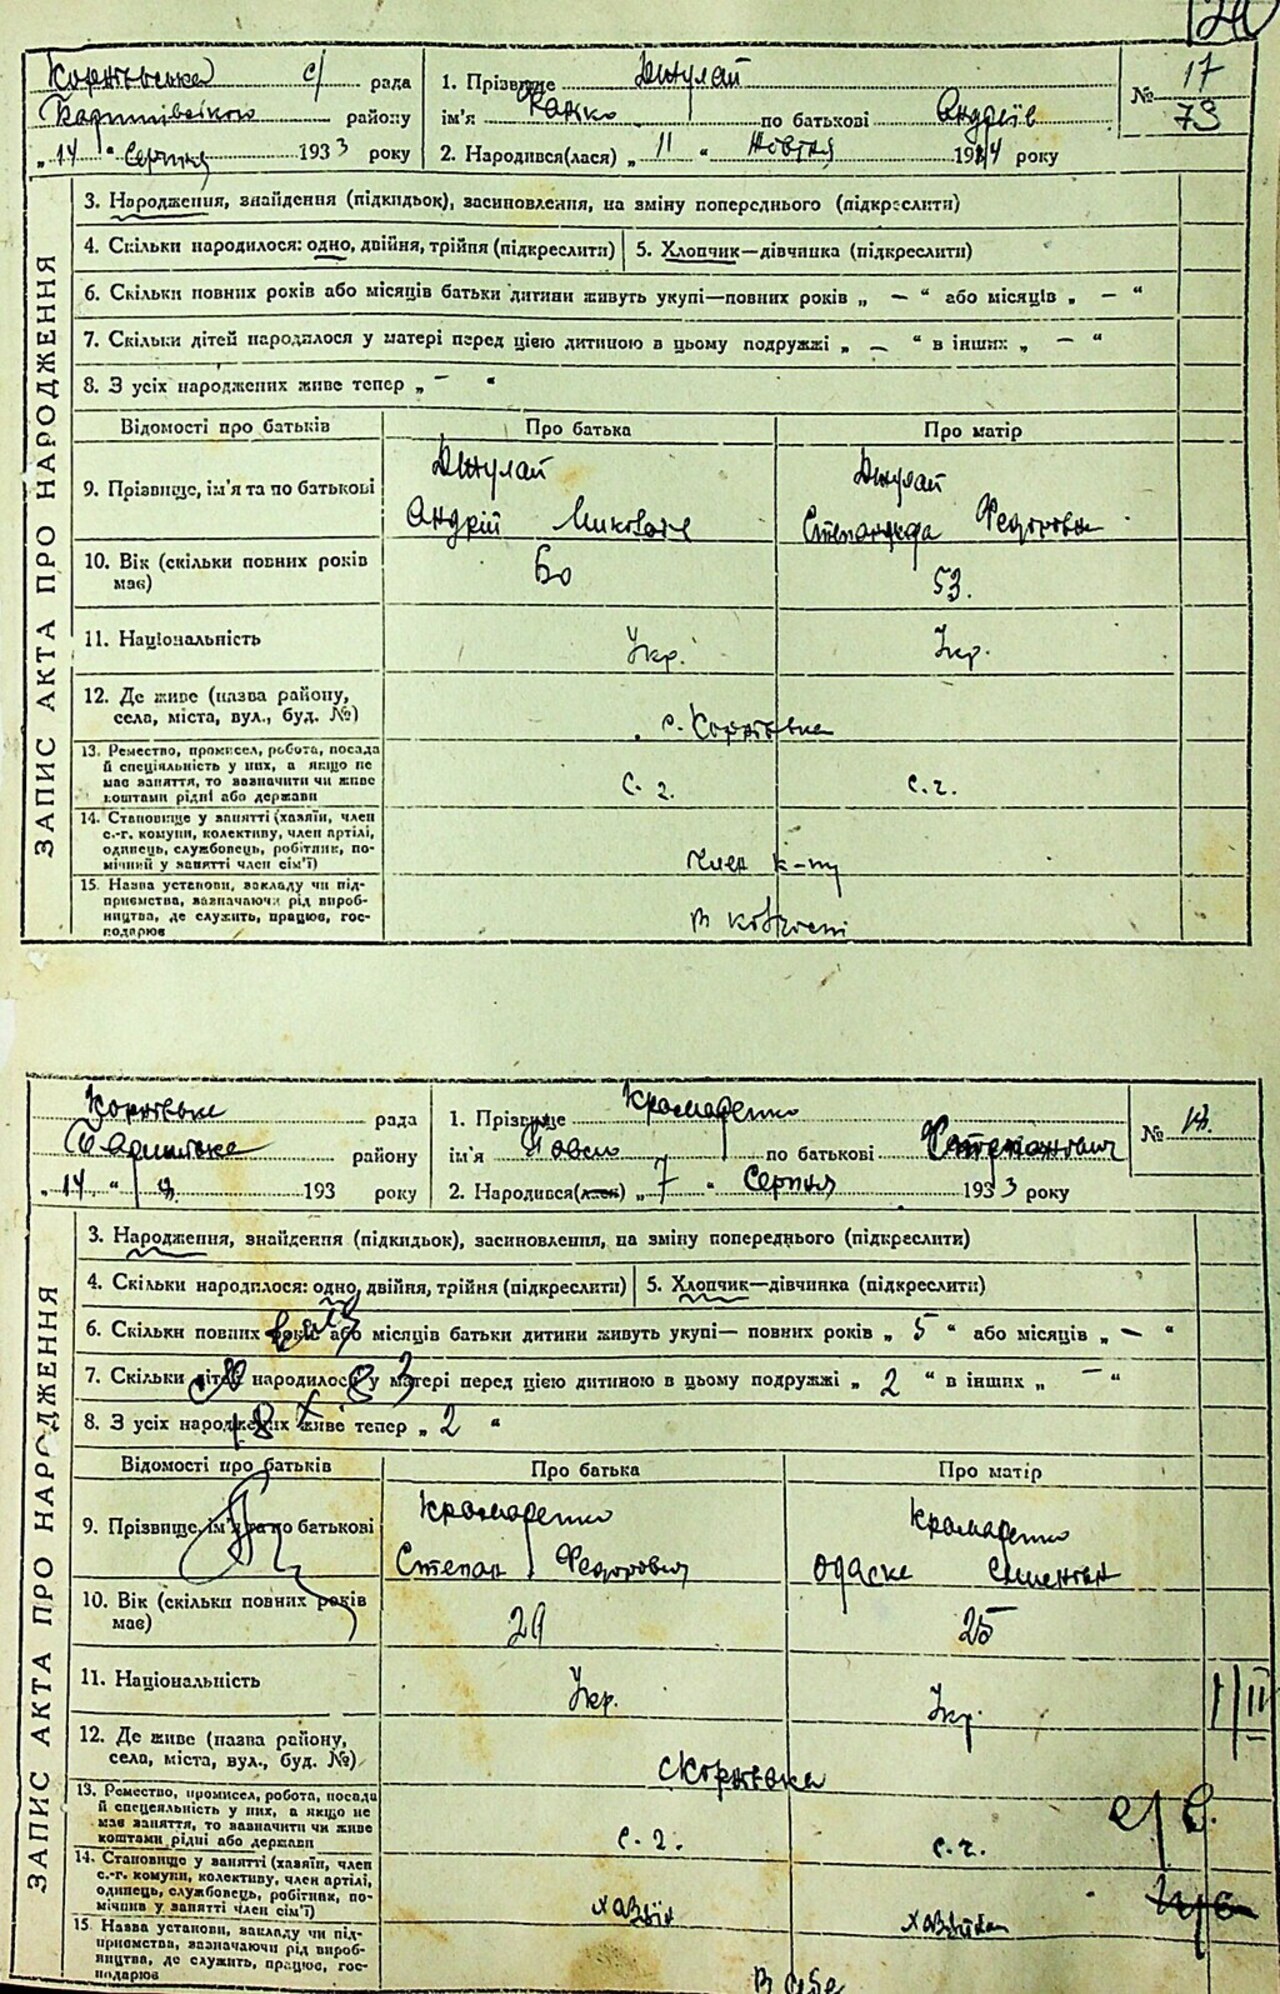 с/ рада
району
„ 14 " Серпня 1933 року
1. Прізвище Джулай
ім'я по батькові Андріїв
2. Народився(лася) „ 11 " 1914 року
№ 17
73
ЗАПИС АКТА ПРО НАРОДЖЕННЯ
3. Народження, знайдення (підкидьок), засиновлення, на зміну попереднього (підкреслити)
4. Скільки народилося: одно, двійня, трійня (підкреслити)
5. Хлопчик—дівчинка (підкреслити)
6. Скільки повних років або місяців батьки дитини живуть укупі—повних років „ — " або місяців „ — "
7. Скільки дітей народилося у матері перед цією дитиною в цьому подружжі „ — " в інших „ — "
8. З усіх народжених живе тепер „ — "
Відомості про батьків
Про батька
Про матір
9. Прізвище, ім'я та по батькові
Джулай
Андрій
Джулай
Федоровна
10. Вік (скільки повних років
має)
60
53.
11. Національність
Укр.
Укр.
12. Де живе (назва району,
села, міста, вул., буд. №)
с.
13. Ремество, промисел, робота, посада
й спеціяльність у них, а якщо не
має заняття, то зазначити чи живе
коштами рідні або держави
с. г.
с. г.
14. Становище у занятті (хазяїн, член
с.-г. комуни, колективу, член артілі,
одинець, службовець, робітник, по-
мічний у занятті член сім'ї)
член к-ту
15. Назва установи, закладу чи під-
приємства, зазначаючи рід вироб-
ництва, де служить, працює, гос-
подарює
в колгоспі
рада
району
„ 14 " 193 року
1. Прізвище Крамаренко
ім'я Павло по батькові Степанович
2. Народився(лася) „ 7 " Серпня 1933 року
№
ЗАПИС АКТА ПРО НАРОДЖЕННЯ
3. Народження, знайдення (підкидьок), засиновлення, на зміну попереднього (підкреслити)
4. Скільки народилося: одно, двійня, трійня (підкреслити)
5. Хлопчик—дівчинка (підкреслити)
6. Скільки повних років або місяців батьки дитини живуть укупі— повних років „ 5 " або місяців „ — "
7. Скільки дітей народилося у матері перед цією дитиною в цьому подружжі „ 2 " в інших „ — "
8. З усіх народжених живе тепер „ 2 "
Відомості про батьків
Про батька
Про матір
9. Прізвище, ім'я та по батькові
Крамаренко
Степан Федорович
Крамаренко
10. Вік (скільки повних років
має)
29
25
11. Національність
Укр.
Укр.
12. Де живе (назва району,
села, міста, вул., буд. №)
13. Ремество, промисел, робота, посада
й спецеяльність у них, а якщо не
має заняття, то зазначити чи живе
коштами рідні або держави
с. г.
с. г.
14. Становище у занятті (хазяїн, член
с.-г. комуни, колективу, член артілі,
одинець, службовець, робітник, по-
мічник у занятті член сім'ї)
хазяїн
хазяйка
15. Назва установи, закладу чи під-
приємства, зазначаючи рід вироб-
ництва, де служить, працює, гос-
подарює
в себе